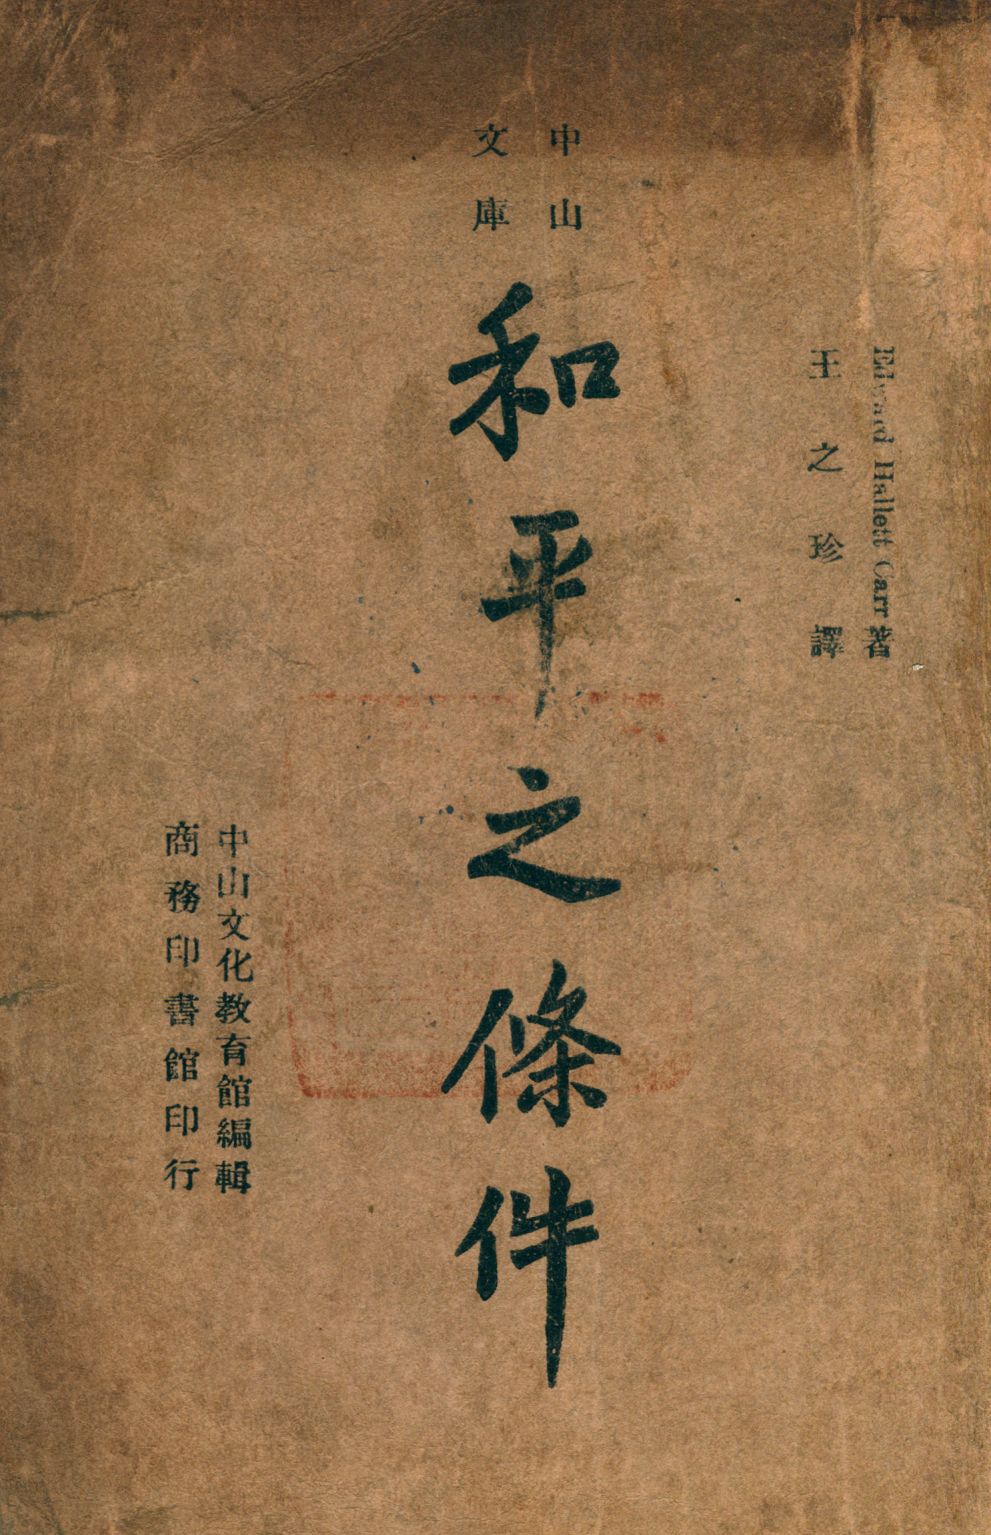 中山
文庫
Edward Hallett Carr 著
王之珍譯
和平之條件
中山文化教育館編輯
商務印書館印行